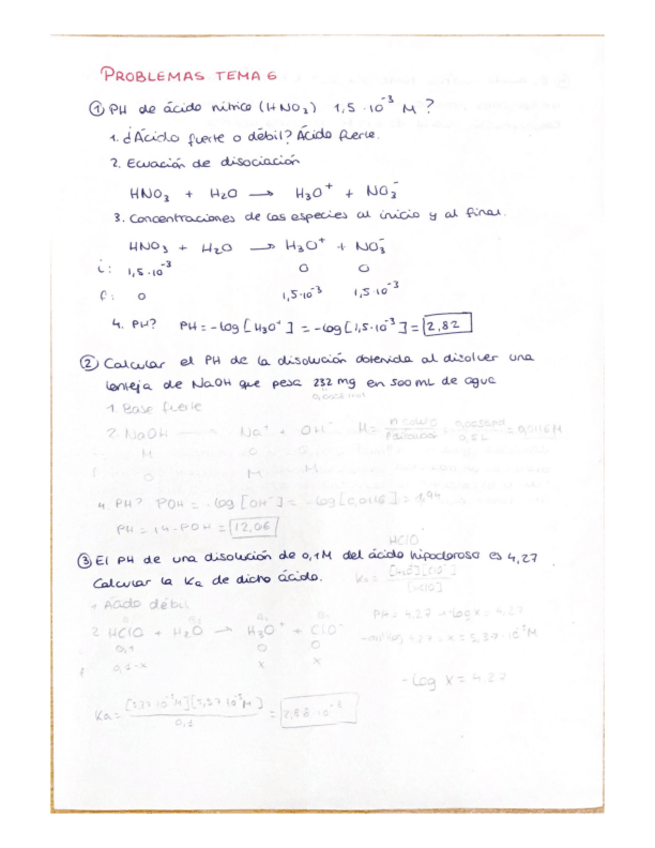 PROBLEMAS TEMA 6
① PH de ácido nítrico (HNO₃) 1,5·10⁻³ M?
1. ¿Ácido fuerte o débil? Ácido fuerte.
2. Ecuación de disociación
HNO₃ + H₂O → H₃O⁺ + NO₃⁻
3. Concentraciones de las especies al inicio y al final.
HNO₃ + H₂O → H₃O⁺ + NO₃⁻
i: 1,5·10⁻³ 0 0
f: 0 1,5·10⁻³ 1,5·10⁻³
4. PH? PH = -log [H₃O⁺] = -log [1,5·10⁻³] = 2,82
② Calcular el PH de la disolución obtenida al disolver una
lenteja de NaOH que pesa 232 mg en 500 mL de agua
1. Base fuerte
2. NaOH → Na⁺ + OH⁻ M = = 0,0116 M
M 0 0
0 M M
4. PH? POH = -log [OH⁻] = -log [0,0116] = 1,94
PH = 14 - POH = 12,06
③ El PH de una disolución de 0,1M del ácido hipocloroso es 4,27
HClO
Calcular la Ka de dicho ácido. Ka = [H₃O⁺][ClO⁻] / [HClO]
1 Ácido débil
2 HClO + H₂O → H₃O⁺ + ClO⁻
PH = 4,27 → -log x = 4,27
0,1 0 0
x = 5,37·10⁻⁵M
0,1-x x x
-log x = 4,27
Ka = [5,37·10⁻⁵M][5,37·10⁻⁵M] / 0,1 = 2,88·10⁻⁸